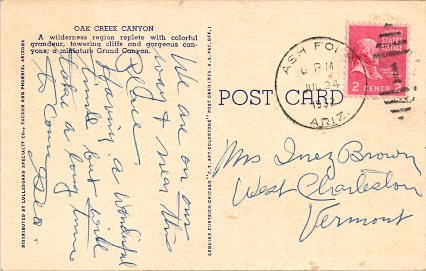 OAK CREEK CANYON
A wilderness region replete with colorful
grandeur, towering cliffs and gorgeous can-
yons; a miniature Grand Canyon.
We are on our
way & near this
place.
Having a wonderful
time but will
take a long time
to come.
Geo.
DISTRIBUTED BY LOLLESGARD SPECIALTY CO., TUCSON AND PHOENIX, ARIZONA
GENUINE CURTEICH-CHICAGO "C.T. ART-COLORTONE" POST CARD (REG. U.S. PAT. OFF.)
POST CARD
ASH FORK
6 PM
ARIZ.
2 CENTS
Mrs Inez Brown
West Charleston
Vermont